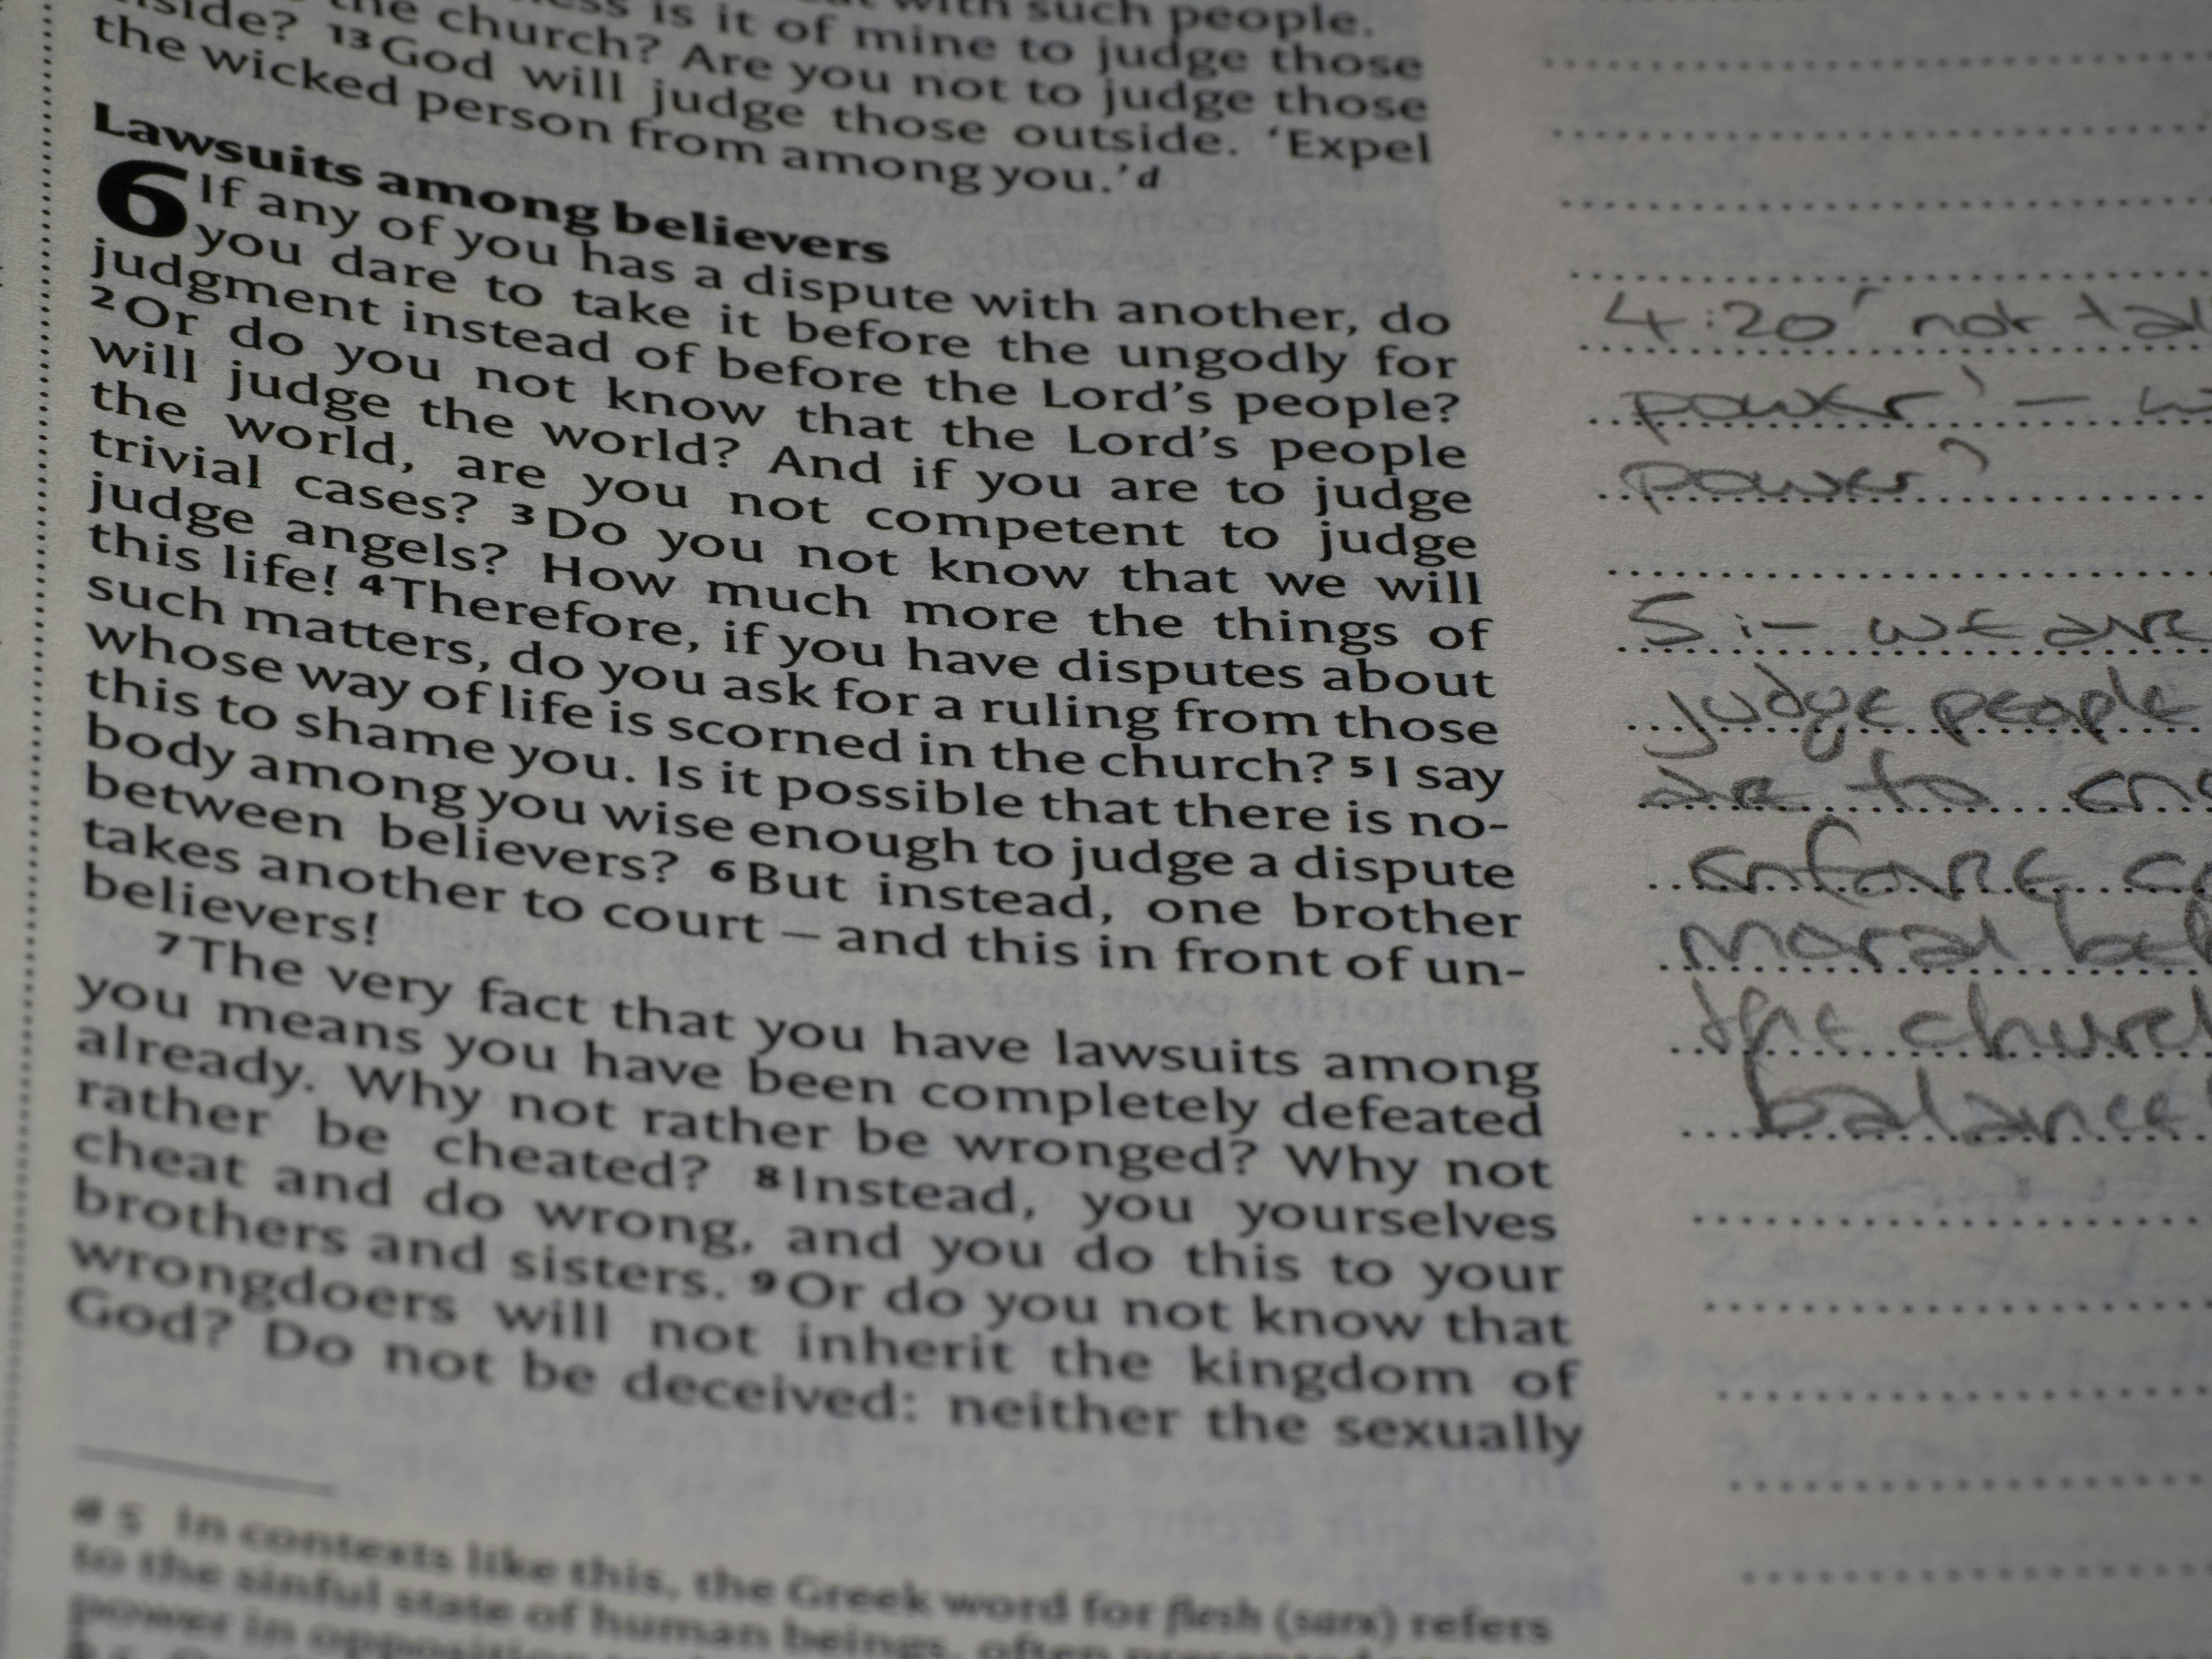 with such people.
is it of mine to judge those
the church? Are you not to judge those
13 God will judge those outside. ‘Expel
the wicked person from among you.’ d
Lawsuits among believers
6 If any of you has a dispute with another, do
you dare to take it before the ungodly for
judgment instead of before the Lord’s people?
2 Or do you not know that the Lord’s people
will judge the world? And if you are to judge
the world, are you not competent to judge
trivial cases? 3 Do you not know that we will
judge angels? How much more the things of
this life! 4 Therefore, if you have disputes about
such matters, do you ask for a ruling from those
whose way of life is scorned in the church? 5 I say
this to shame you. Is it possible that there is no-
body among you wise enough to judge a dispute
between believers? 6 But instead, one brother
takes another to court – and this in front of un-
believers!
7 The very fact that you have lawsuits among
you means you have been completely defeated
already. Why not rather be wronged? Why not
rather be cheated? 8 Instead, you yourselves
cheat and do wrong, and you do this to your
brothers and sisters. 9 Or do you not know that
wrongdoers will not inherit the kingdom of
God? Do not be deceived: neither the sexually
5 In contexts like this, the Greek word for flesh (sarx) refers
to the sinful state of human beings, often presented
power in opposition
4:20 ' not
power' –
power?
5:- we are
judge people
to
enforce
moral
the church
balance